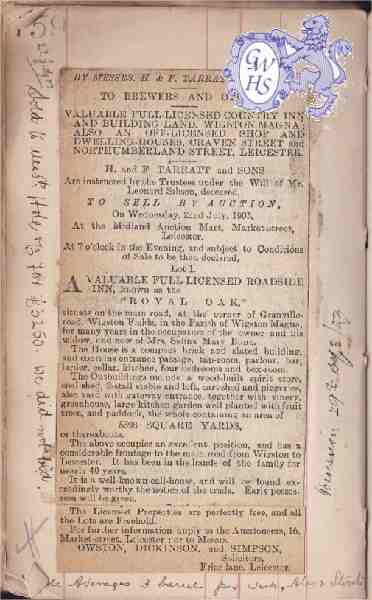 BY MESSRS. H. & F. TARRATT
TO BREWERS AND
VALUABLE FULL-LICENSED COUNTRY INN
AND BUILDING LAND, WIGSTON MAGNA;
ALSO AN OFF-LICENSED SHOP AND
DWELLING-HOUSES, CRAVEN STREET and
NORTHUMBERLAND STREET, LEICESTER.
H. and F. TARRATT and SONS
Are instructed by the Trustees under the Will of Mr.
Leonard Sibson, deceased,
TO SELL BY AUCTION,
On Wednesday, 22nd July, 1903,
At the Midland Auction Mart, Market-street,
Leicester,
At 7 o'clock in the Evening, and subject to Conditions
of Sale to be then declared,
Lot 1.
A VALUABLE FULL-LICENSED ROADSIDE
INN, known as the
"ROYAL OAK,"
situate on the main road, at the corner of Granville-
road, Wigston Fields, in the Parish of Wigston Magna,
for many years in the occupation of the owner and his
widow, and now of Mrs. Selina Mary Bond.
The House is a compact brick and slated building,
and contains entrance passage, tap-room, parlour, bar,
larder, cellar, kitchen, four bedrooms and box-room.
The Outbuildings include a wood-built spirit store,
coal shed, stable and loft, cartshed and piggeries,
also yard with gateway entrance, together with vinery,
greenhouse, large kitchen garden well planted with fruit
trees, and paddock, the whole containing an area of
SQUARE YARDS,
or thereabouts.
The above occupies an excellent position, and has a
considerable frontage to the main road from Wigston to
Leicester. It has been in the hands of the family for
nearly 40 years.
It is a well-known call-house, and will be found ex-
ceedingly worthy the notice of the trade. Early posses-
sion will be given.
The Licensed Properties are perfectly free, and all
the Lots are Freehold.
For further information apply to the Auctioneers, 16,
Market-street, Leicester; or to Messrs.
OWSTON, DICKINSON, and SIMPSON,
Solicitors,
Friar lane, Leicester.
GWHS
Sold to
for £5250. we did not bid
Averages 3 barrels per week, Ales & Stout